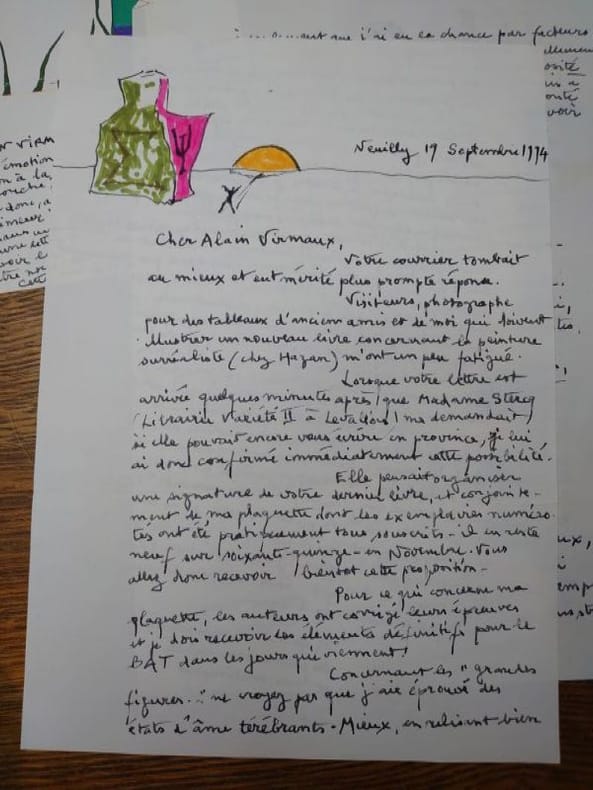 Neuilly 19 Septembre 1994
Cher Alain Virmaux,
Votre courrier tombait
au mieux et eut mérité plus prompte réponse.
Visiteurs, photographe
pour des tableaux d'anciens amis et de moi qui doivent
illustrer un nouveau livre concernant la peinture
surréaliste (chez Hazan) m'ont un peu fatigué.
Lorsque votre lettre est
arrivée quelques minutes après que Madame Stercq
(Librairie Variété II à Levallois) me demandait
si elle pouvait encore vous écrire en province, je lui
ai donc confirmé immédiatement cette possibilité.
Elle pensait organiser
une signature de votre dernier livre, et conjointe-
ment de ma plaquette dont les exemplaires numéro-
tés ont été pratiquement tous souscrits - il en reste
neuf sur soixante-quinze - en Novembre. Vous
allez donc recevoir bientôt cette proposition -
Pour ce qui concerne ma
plaquette, les auteurs ont corrigé leurs épreuves
et je dois recevoir les éléments définitifs pour le
BAT dans les jours qui viennent!
Concernant les "grandes
figures.." ne croyez pas que j'aie éprouvé des
états d'âme térébrants - Mieux, en relisant bien